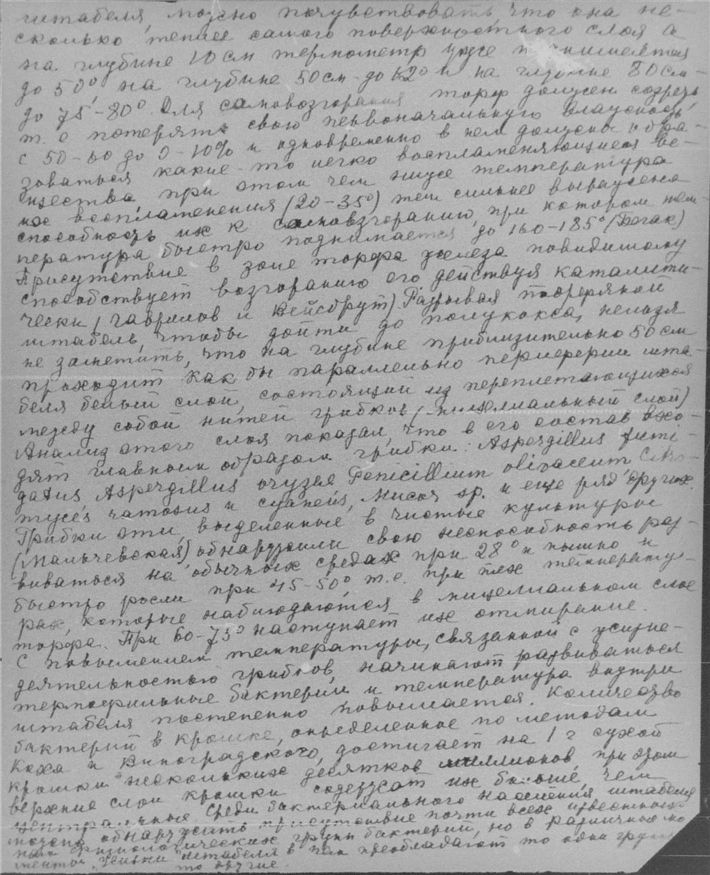 штабеля, можно почувствовать, что она не-
сколько теплее самого поверхностного слоя а
на глубине 10 см термометр уже поднимается
до 50° на глубине 50см - до 62° и на глубине 80см-
до 75°-80°. Для самовозгорания торф должен созреть
т.е потерять свою первоначальную влажность
с 50-60 до 0-10% и одновременно в нем должны обра-
зоваться какие-то легко воспламеняющиеся ве-
щества при этом чем ниже температура
их воспламенения (20-35°) тем сильнее выражена
способность их к самовозгоранию, при котором тем-
пература быстро поднимается до 160-185°
Присутствие в золе торфа железа повидимому
способствует возгоранию его действуя каталити-
чески (Гаврилов и Вейсбрут). Разрывая
штабель, чтобы дойти до полукокса, нельзя
не заметить, что на глубине приблизительно 50 см
проходит как бы параллельно периферии шта-
беля белый слой, состоящий из переплетающихся
между собой нитей грибков (мицелиальный слой)
Анализ этого слоя показал, что в его состав вхо-
дят главным образом грибки: Aspergillus fumi-
gatus Aspergillus oryzae Penicillium
sp. и еще ряд других.
Грибки эти, выделенные в чистые культуры
(Мальчевская) обнаружили свою неспособность раз-
виваться на обычных средах при 28° и пышно и
быстро росли при 45-50° т.е. при тех температу-
рах, которые наблюдаются в мицелиальном слое
торфа. При 60-75° наступает их отмирание.
С повышением температуры, связанной с
деятельностью грибов, начинают развиваться
термофильные бактерии и температура внутри
штабеля постепенно повышается. Количество
бактерий в крошке, определенное по методам
Коха и Виноградского, достигает на 1 г сухой
крошки нескольких десятков миллионов, при этом
верхние слои крошки содержат их больше, чем
центральные. Среди бактериального населения штабеля
можно обнаружить присутствие почти всех известных
нам физиологических групп бактерий, но в различные мо-
менты жизни штабеля в них преобладают то одни группы
то другие.